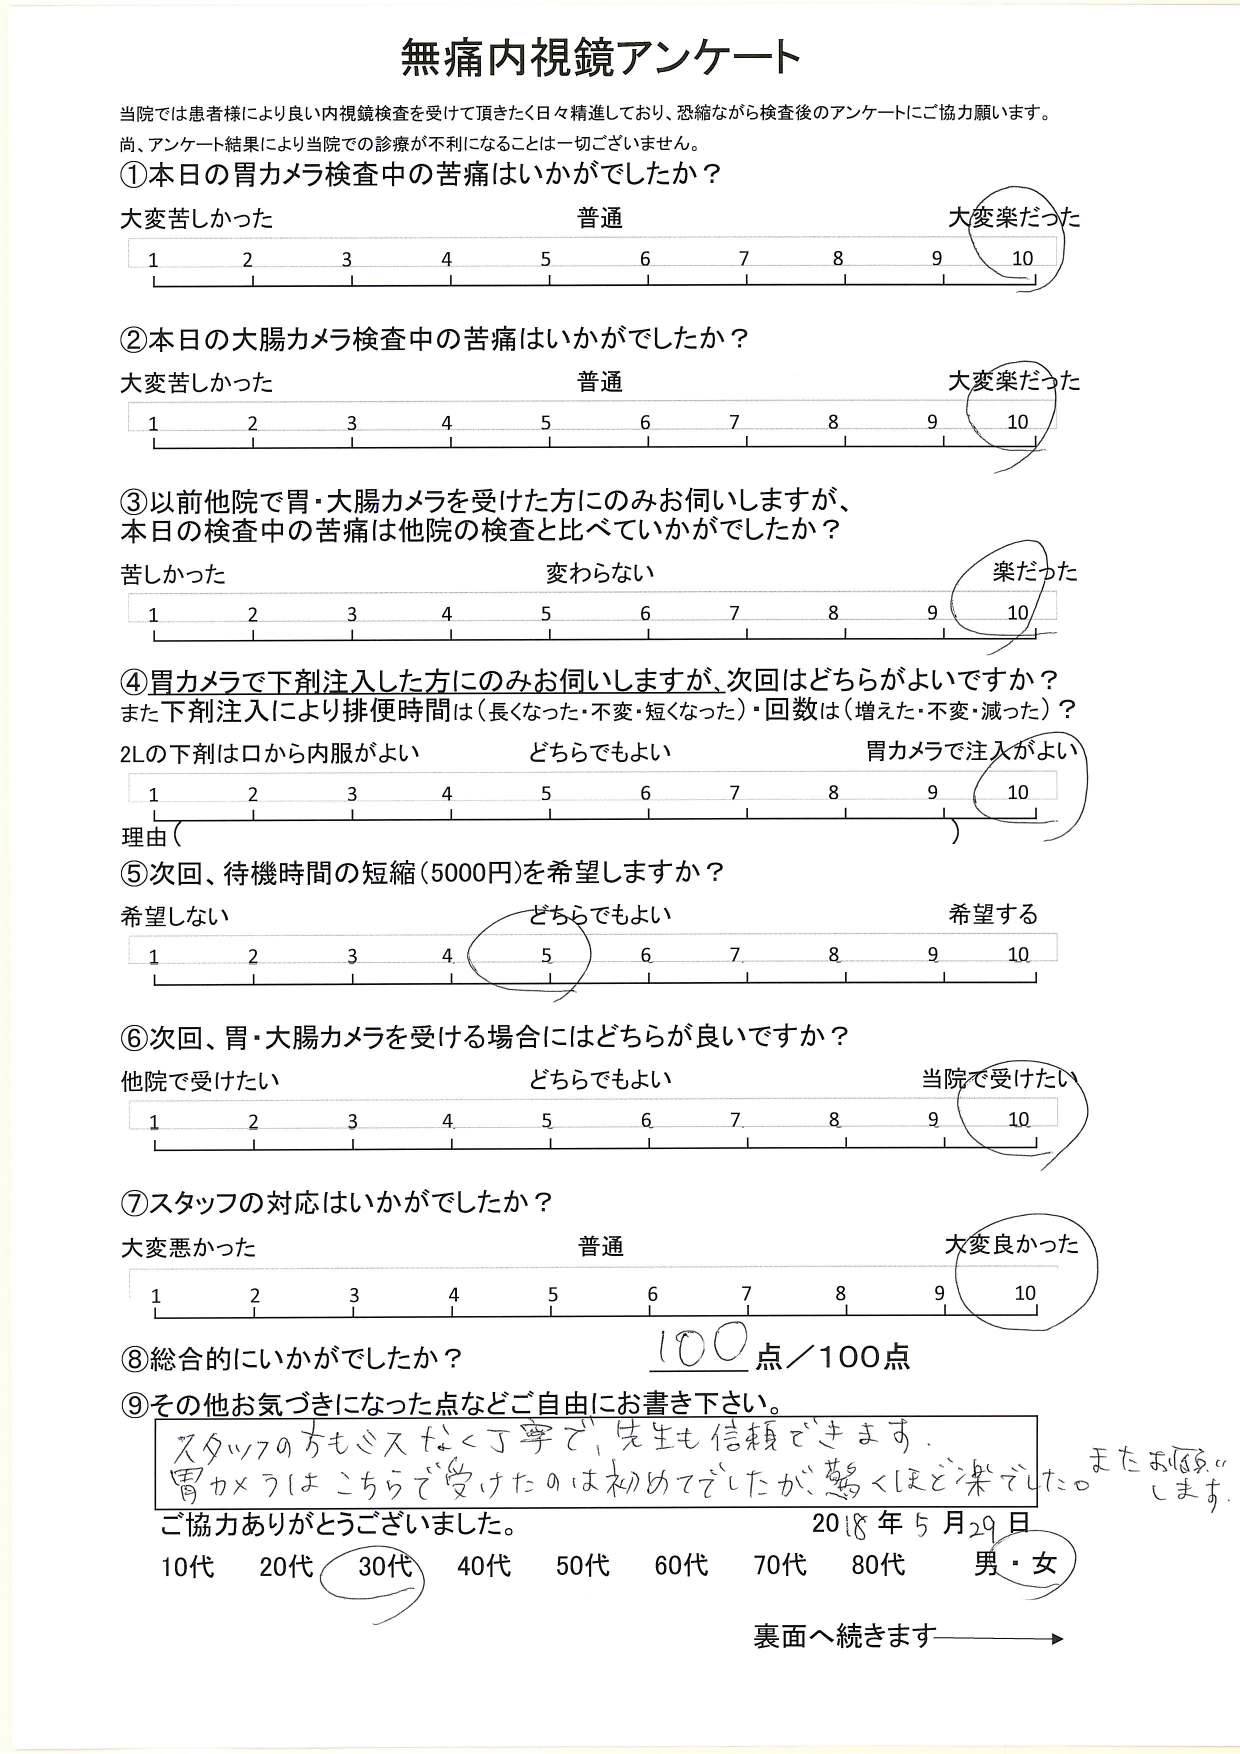 無痛内視鏡アンケート
当院では患者様により良い内視鏡検査を受けて頂きたく日々精進しており、恐縮ながら検査後のアンケートにご協力願います。
尚、アンケート結果により当院での診療が不利になることは一切ございません。
①本日の胃カメラ検査中の苦痛はいかがでしたか？
大変苦しかった 普通 大変楽だった
1 2 3 4 5 6 7 8 9 10
②本日の大腸カメラ検査中の苦痛はいかがでしたか？
大変苦しかった 普通 大変楽だった
1 2 3 4 5 6 7 8 9 10
③以前他院で胃・大腸カメラを受けた方にのみお伺いしますが、
本日の検査中の苦痛は他院の検査と比べていかがでしたか？
苦しかった 変わらない 楽だった
1 2 3 4 5 6 7 8 9 10
④胃カメラで下剤注入した方にのみお伺いしますが、次回はどちらがよいですか？
また下剤注入により排便時間は（長くなった・不変・短くなった）・回数は（増えた・不変・減った）？
2Lの下剤は口から内服がよい どちらでもよい 胃カメラで注入がよい
1 2 3 4 5 6 7 8 9 10
理由（ ）
⑤次回、待機時間の短縮（5000円）を希望しますか？
希望しない どちらでもよい 希望する
1 2 3 4 5 6 7 8 9 10
⑥次回、胃・大腸カメラを受ける場合にはどちらが良いですか？
他院で受けたい どちらでもよい 当院で受けたい
1 2 3 4 5 6 7 8 9 10
⑦スタッフの対応はいかがでしたか？
大変悪かった 普通 大変良かった
1 2 3 4 5 6 7 8 9 10
⑧総合的にいかがでしたか？ 100 点／100点
⑨その他お気づきになった点などご自由にお書き下さい。
スタッフの方もミスなく丁寧で、先生も信頼できます。
胃カメラはこちらで受けたのは初めてでしたが、驚くほど楽でした。またお願い
します。
ご協力ありがとうございました。 2018年 5 月29日
10代 20代 30代 40代 50代 60代 70代 80代 男・女
裏面へ続きます